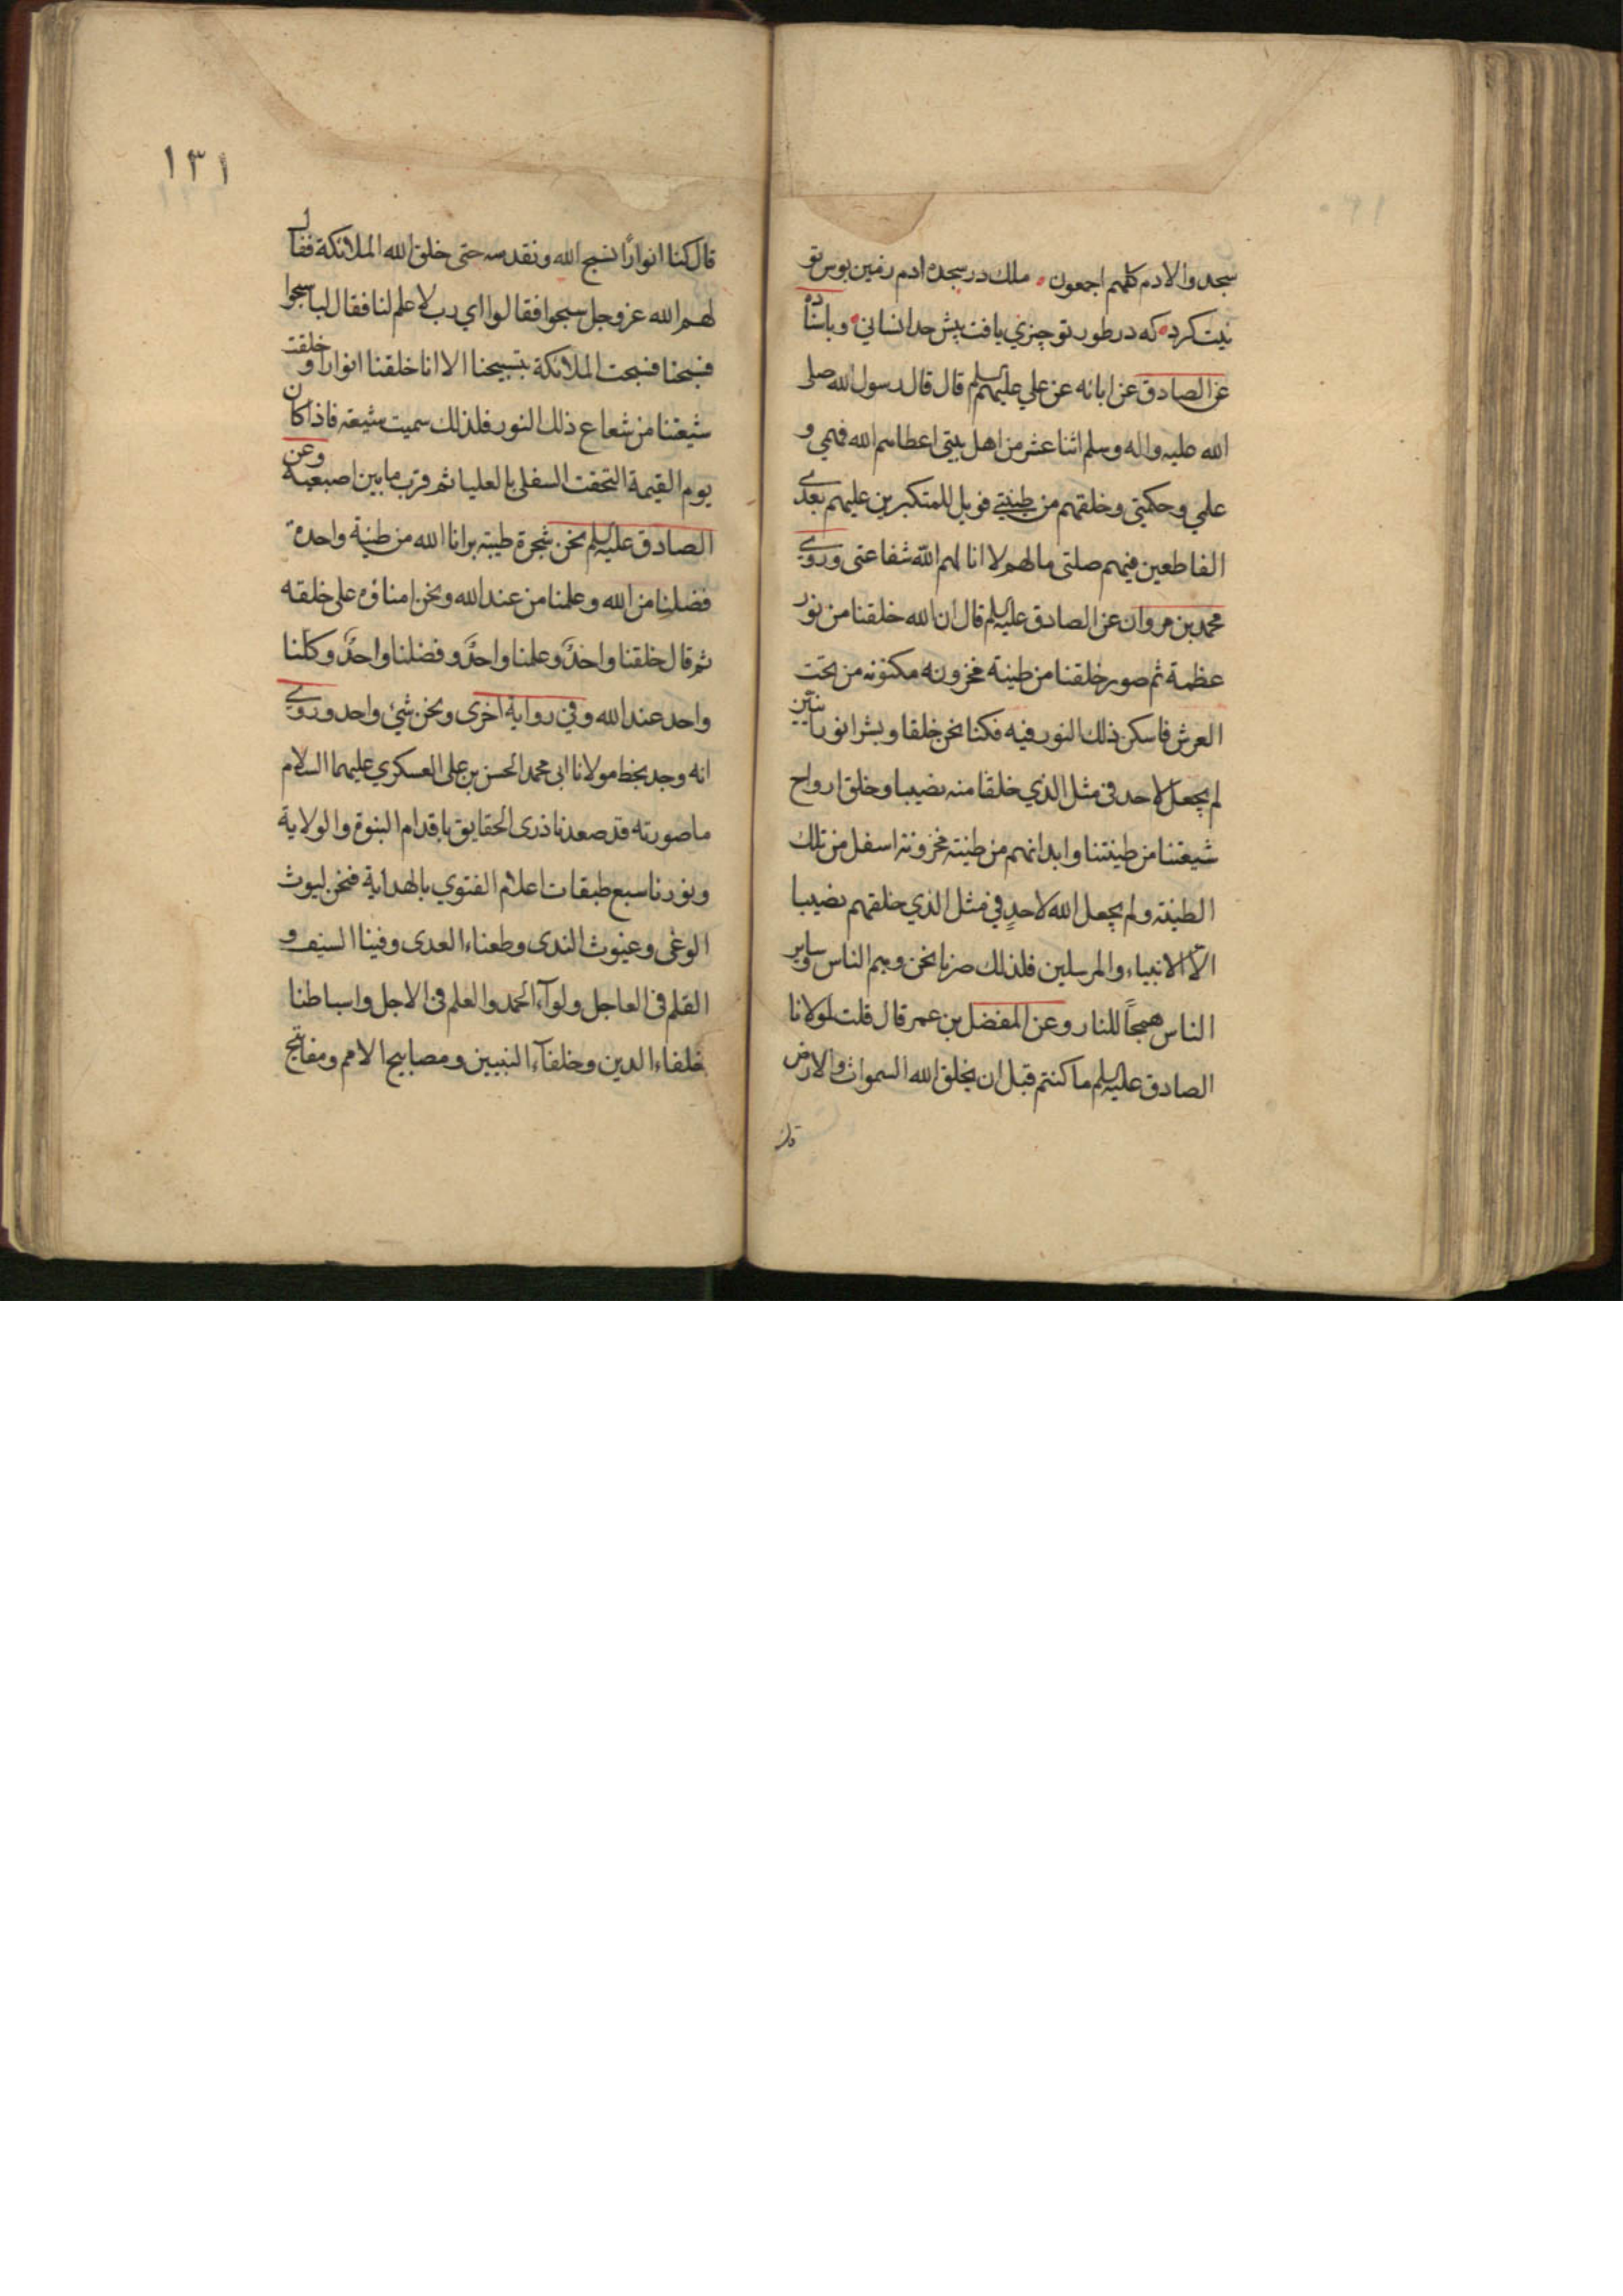 سجدوا لادم كلهم اجمعون ملك در سجده ادم زمين بوس تو
نيت كرد كه در طور تو چيزي يافت پيش حد انساني وباسناده
عن الصادق عن ابائه عن علي عليهم السلم قال قال رسول الله صلى
الله عليه واله وسلم اثنا عشر من اهل بيتي اعطاهم الله فهمي و
علمي وحكمتي وخلقهم من طينتي فويل للمتكبرين عليهم بعدي
القاطعين فيهم صلتي ما لهم لا انالهم الله شفاعتي وروي
محمد بن مروان عن الصادق عليه السلم قال ان الله خلقنا من نور
عظمة ثم صور خلقنا من طينة مخزونه مكنونه من تحت
العرش فاسكن ذلك النور فيه فكنا نحن خلقا وبشرا نورانيين
لم يجعل لاحد في مثل الذي خلقنا منه نصيبا وخلق ارواح
شيعتنا من طينتنا وابدانهم من طينة مخزونة اسفل من تلك
الطينة ولم يجعل الله لاحدٍ في مثل الذي خلقهم نصيبا
الا الانبياء والمرسلين فلذلك صرنا نحن وهم الناس وساير
الناس همجاً للنار وعن المفضل بن عمر قال قلت لمولانا
الصادق عليه السلم ما كنتم قبل ان يخلق الله السموات والارض
قال
١٣١
قال كنا انوارًا نسبح الله ونقدسه حتى خلق الله الملائكة فقال
لهم الله عز وجل سبحوا فقالوا اي رب لا علم لنا فقال لنا سبحوا
فسبحنا فسبحت الملائكة بتسبيحنا الا انا خلقنا انوارا وخلقت
شيعتنا من شعاع ذلك النور فلذلك سميت شيعة فاذا كان
يوم القيمة التحقت السفلى بالعليا ثم قرب ما بين اصبعيه وعن
الصادق عليه السلم نحن شجرة طيبة برانا الله من طينة واحدة
فضلنا من الله وعلمنا من عند الله ونحن امناؤه على خلقه
ثم قال خلقنا واحدٌ وعلمنا واحدٌ وفضلنا واحدٌ وكلنا
واحد عند الله وفي رواية اخرى ونحن شيء واحد وروي
انه وجد بخط مولانا ابي محمد الحسن بن علي العسكري عليهما السلام
ما صورته قد صعدنا ذرى الحقايق باقدام النبوة والولاية
ونورنا سبع طبقات اعلام الفتوي بالهداية فنحن ليوث
الوغى وغيوث الندى وطعناء العدى وفينا السيف و
القلم في العاجل ولوآء الحمد والعلم في الاجل واسباطنا
خلفاء الدين وخلفآء النبيين ومصابيح الامم ومفاتيح